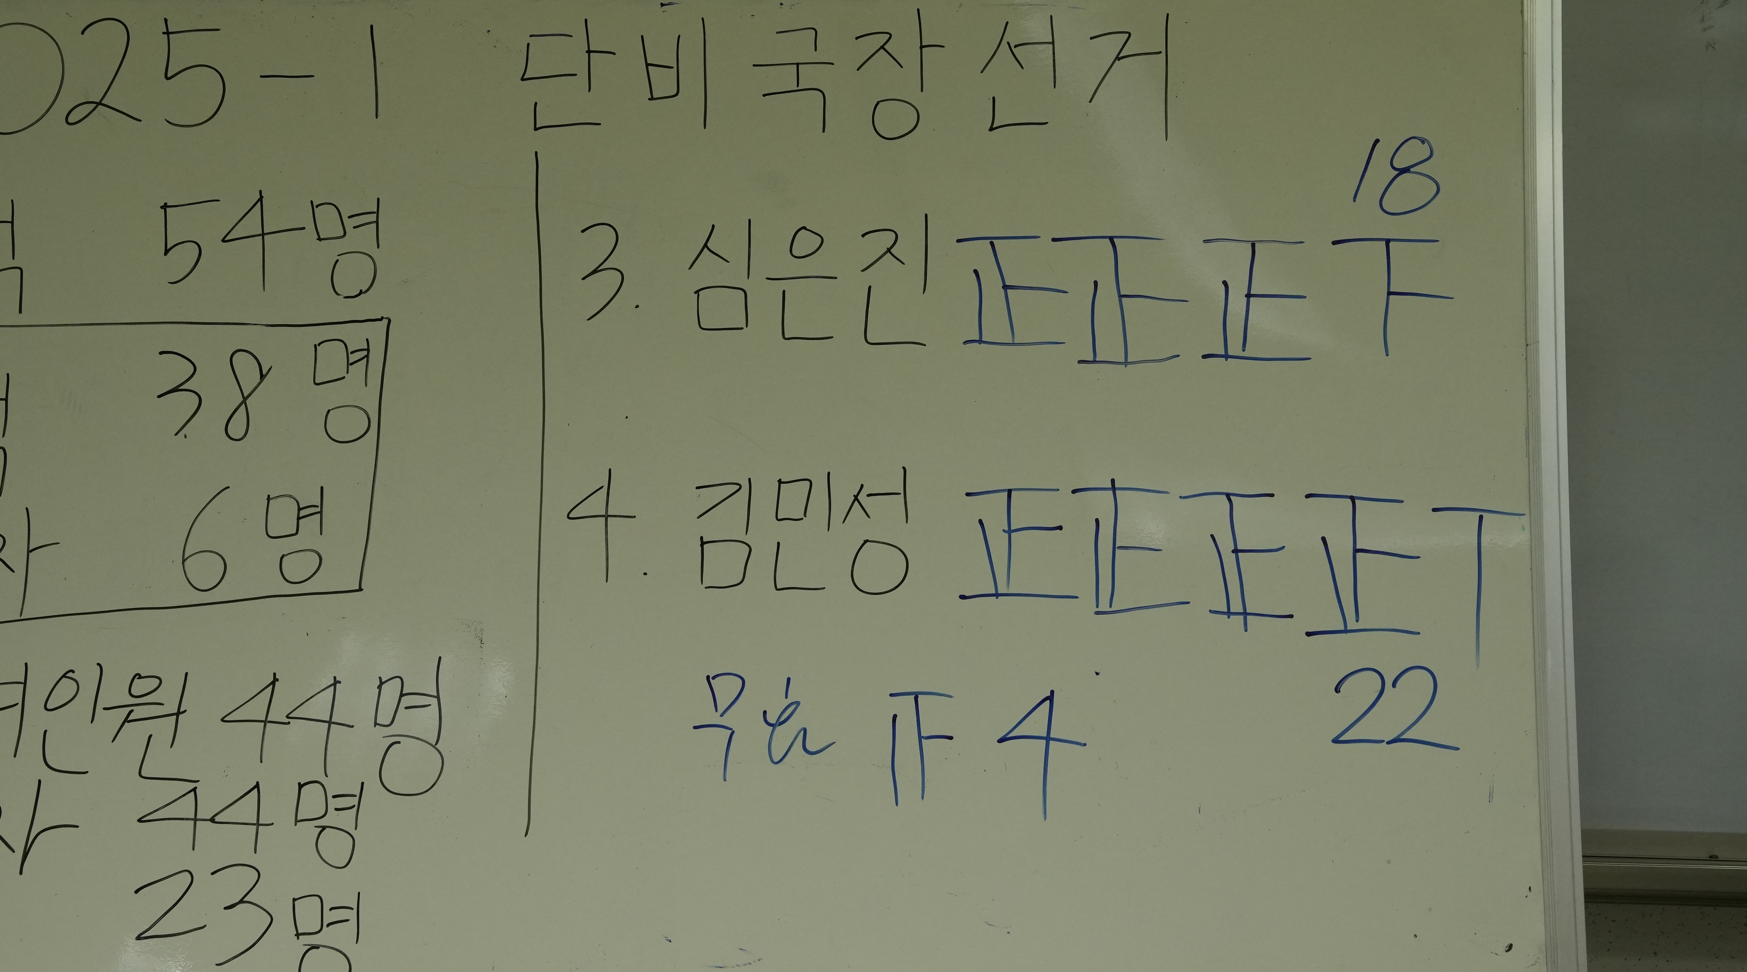 2025-1 단비국장선거
54명
38명
6명
인원 44명
44명
23명
18
3. 심은진 正正正下
4. 김민성 正正正正丅
22
무효 4